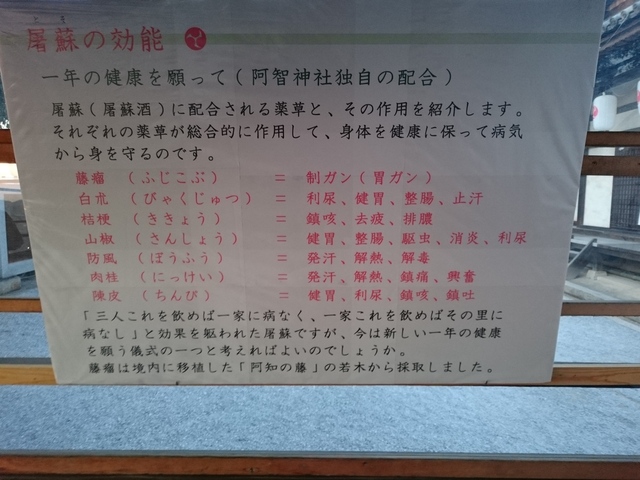 とそ
屠蘇の効能
一年の健康を願って(阿智神社独自の配合)
屠蘇(屠蘇酒)に配合される薬草と、その作用を紹介します。
それぞれの薬草が総合的に作用して、身体を健康に保って病気
から身を守るのです。
藤瘤 (ふじこぶ) = 制ガン(胃ガン)
白朮 (びゃくじゅつ) = 利尿、健胃、整腸、止汗
桔梗 (ききょう) = 鎮咳、去痰、排膿
山椒 (さんしょう) = 健胃、整腸、駆虫、消炎、利尿
防風 (ぼうふう) = 発汗、解熱、解毒
肉桂 (にっけい) = 発汗、解熱、鎮痛、興奮
陳皮 (ちんぴ) = 健胃、利尿、鎮咳、鎮吐
「三人これを飲めば一家に病なく、一家これを飲めばその里に
病なし」と効果を謳われた屠蘇ですが、今は新しい一年の健康
を願う儀式の一つと考えればよいのでしょうか。
藤瘤は境内に移植した「阿知の藤」の若木から採取しました。